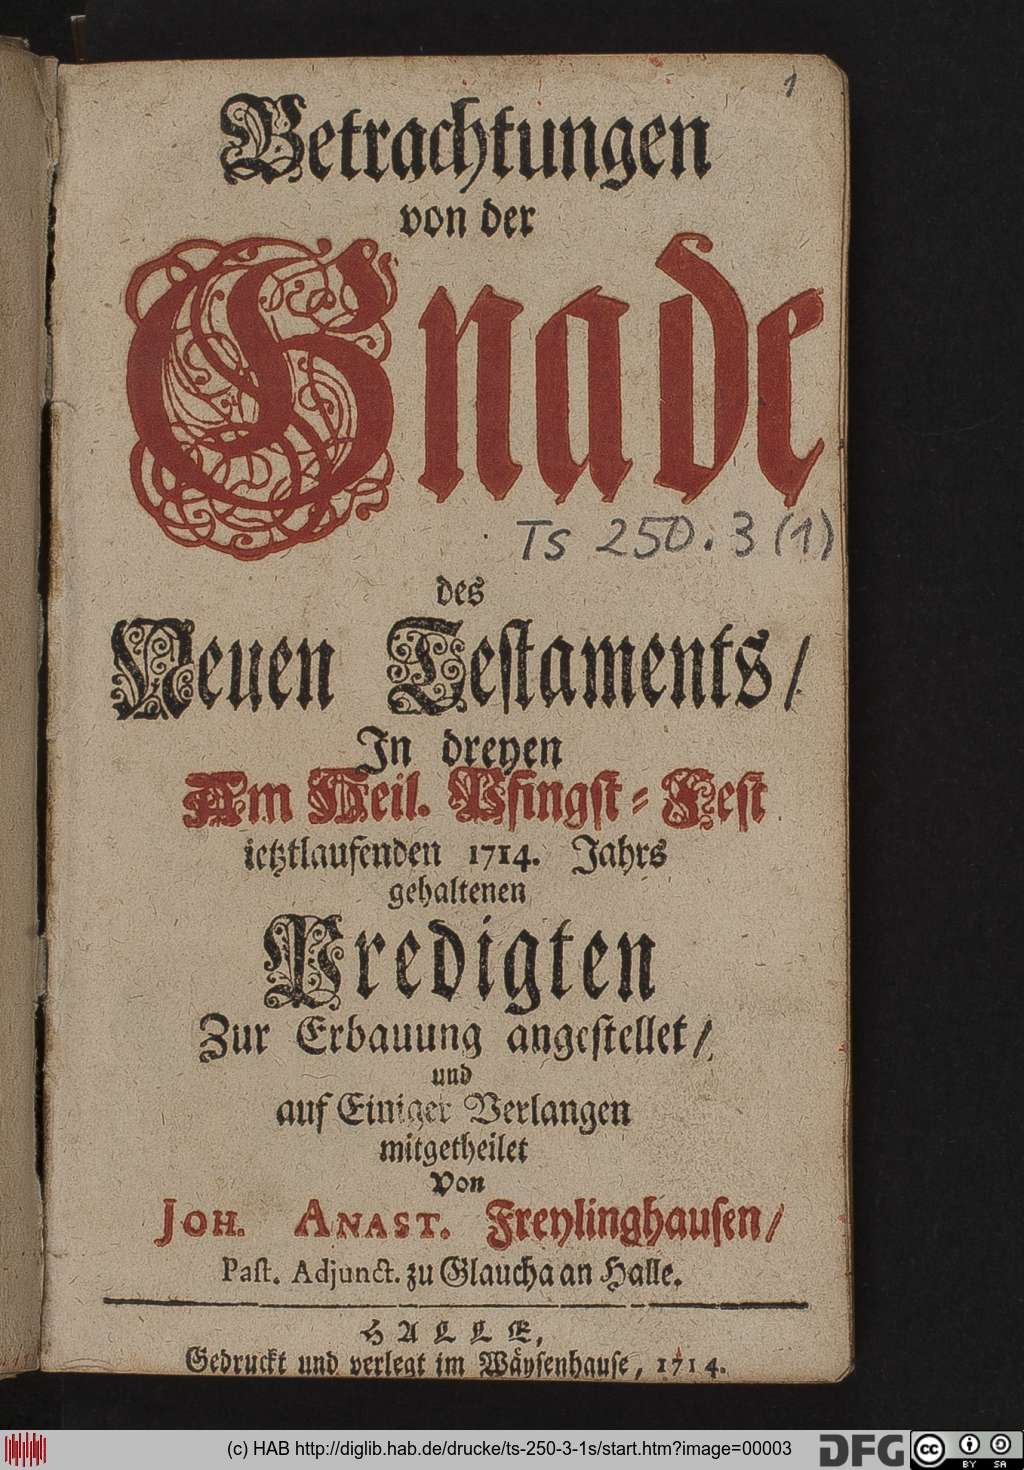 1
Betrachtungen
von der
Gnade
Ts 250.3 (1)
des
Neuen Testaments/
In dreyen
Am Heil. Pfingst-Fest
ietztlaufenden 1714. Jahrs
gehaltenen
Predigten
Zur Erbauung angestellet/
und
auf Einiger Verlangen
mitgetheilet
Von
JOH. ANAST. Freylinghausen/
Past. Adjunct. zu Glaucha an Halle.
HALLE,
Gedruckt und verlegt im Wäysenhause, 1714.
(c) HAB http://diglib.hab.de/drucke/ts-250-3-1s/start.htm?image=00003
DFG
cc
BY SA